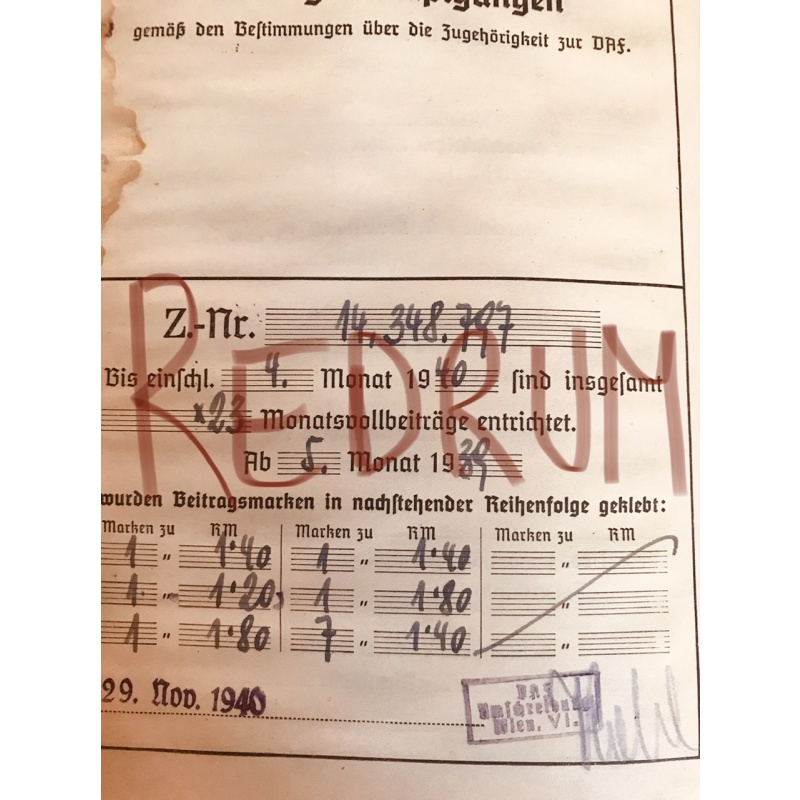 gemäß den Bestimmungen über die Zugehörigkeit zur DAF.
Z.-Nr. 14,348.797
REDRUM
Bis einschl. 4. Monat 1940 sind insgesamt
x23 Monatsvollbeiträge entrichtet.
Ab 5. Monat 1939
wurden Beitragsmarken in nachstehender Reihenfolge geklebt:
Marken zu RM Marken zu RM Marken zu RM
1 " 1·40 1 " 1·40 "
1 " 1·20 1 " 1·80 "
1 " 1·80 7 " 1·40 "
29. Nov. 1940
DAF
Umschreibung
Wien, VI.